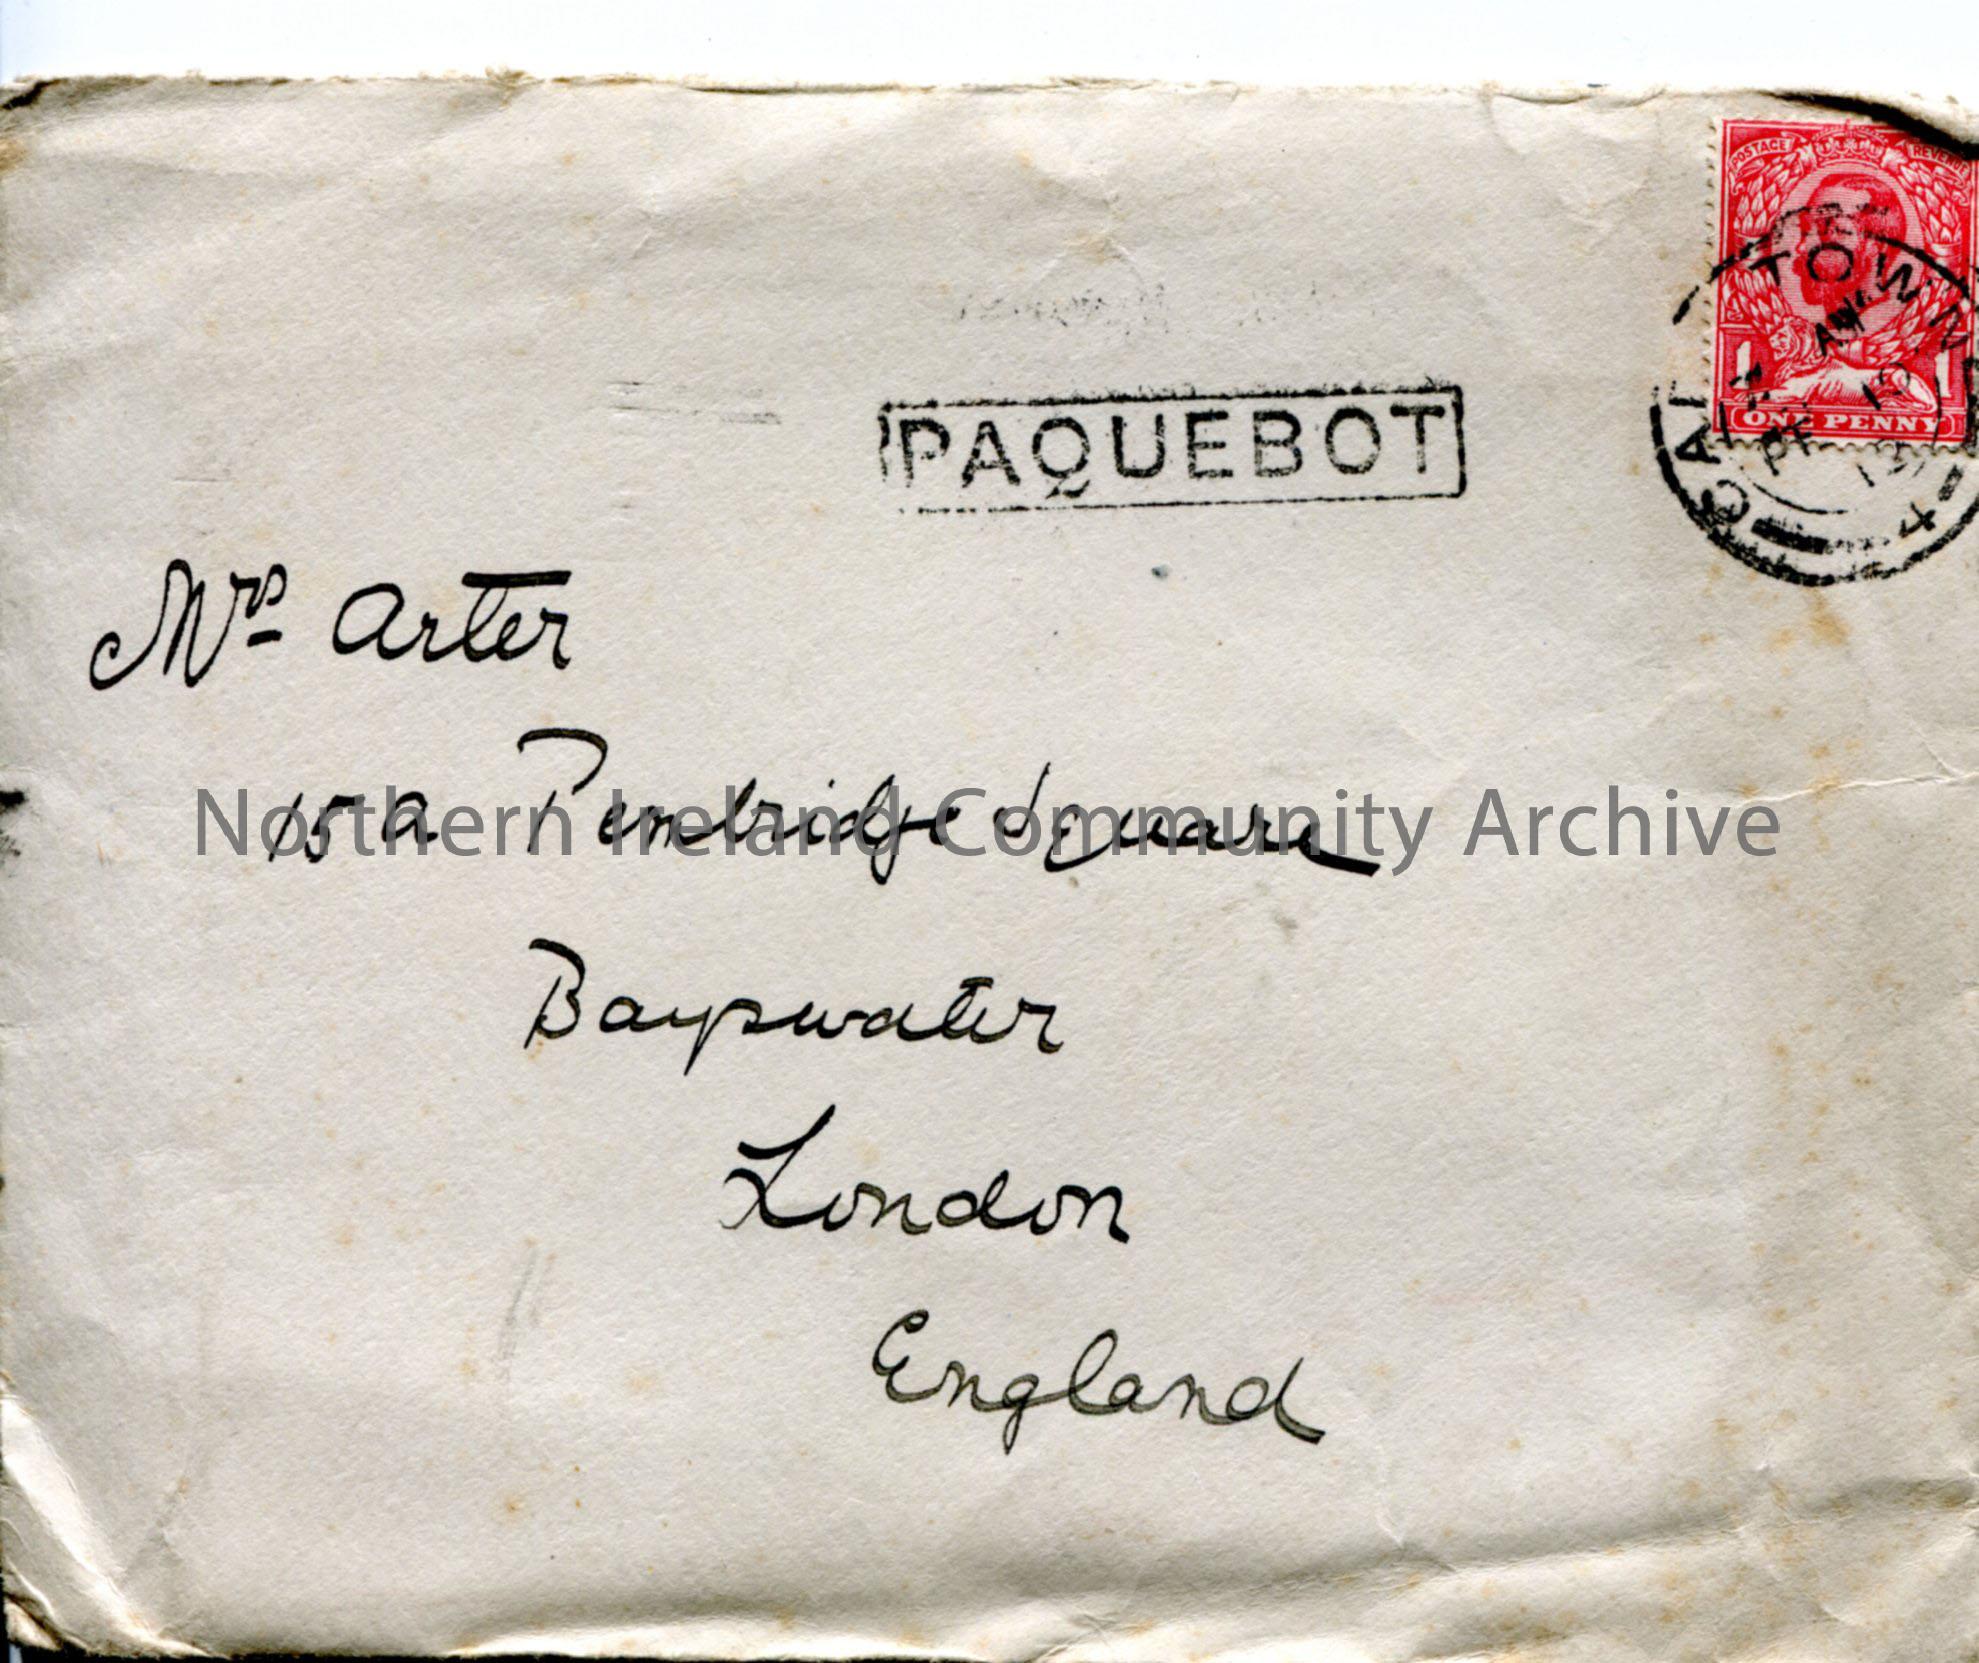 POSTAGE REVENUE
CAPE TOWN
1 1
ONE PENNY
PAQUEBOT
Mrs Arter
15a Pembridge Square
Northern Ireland Community Archive
Bayswater
London
England